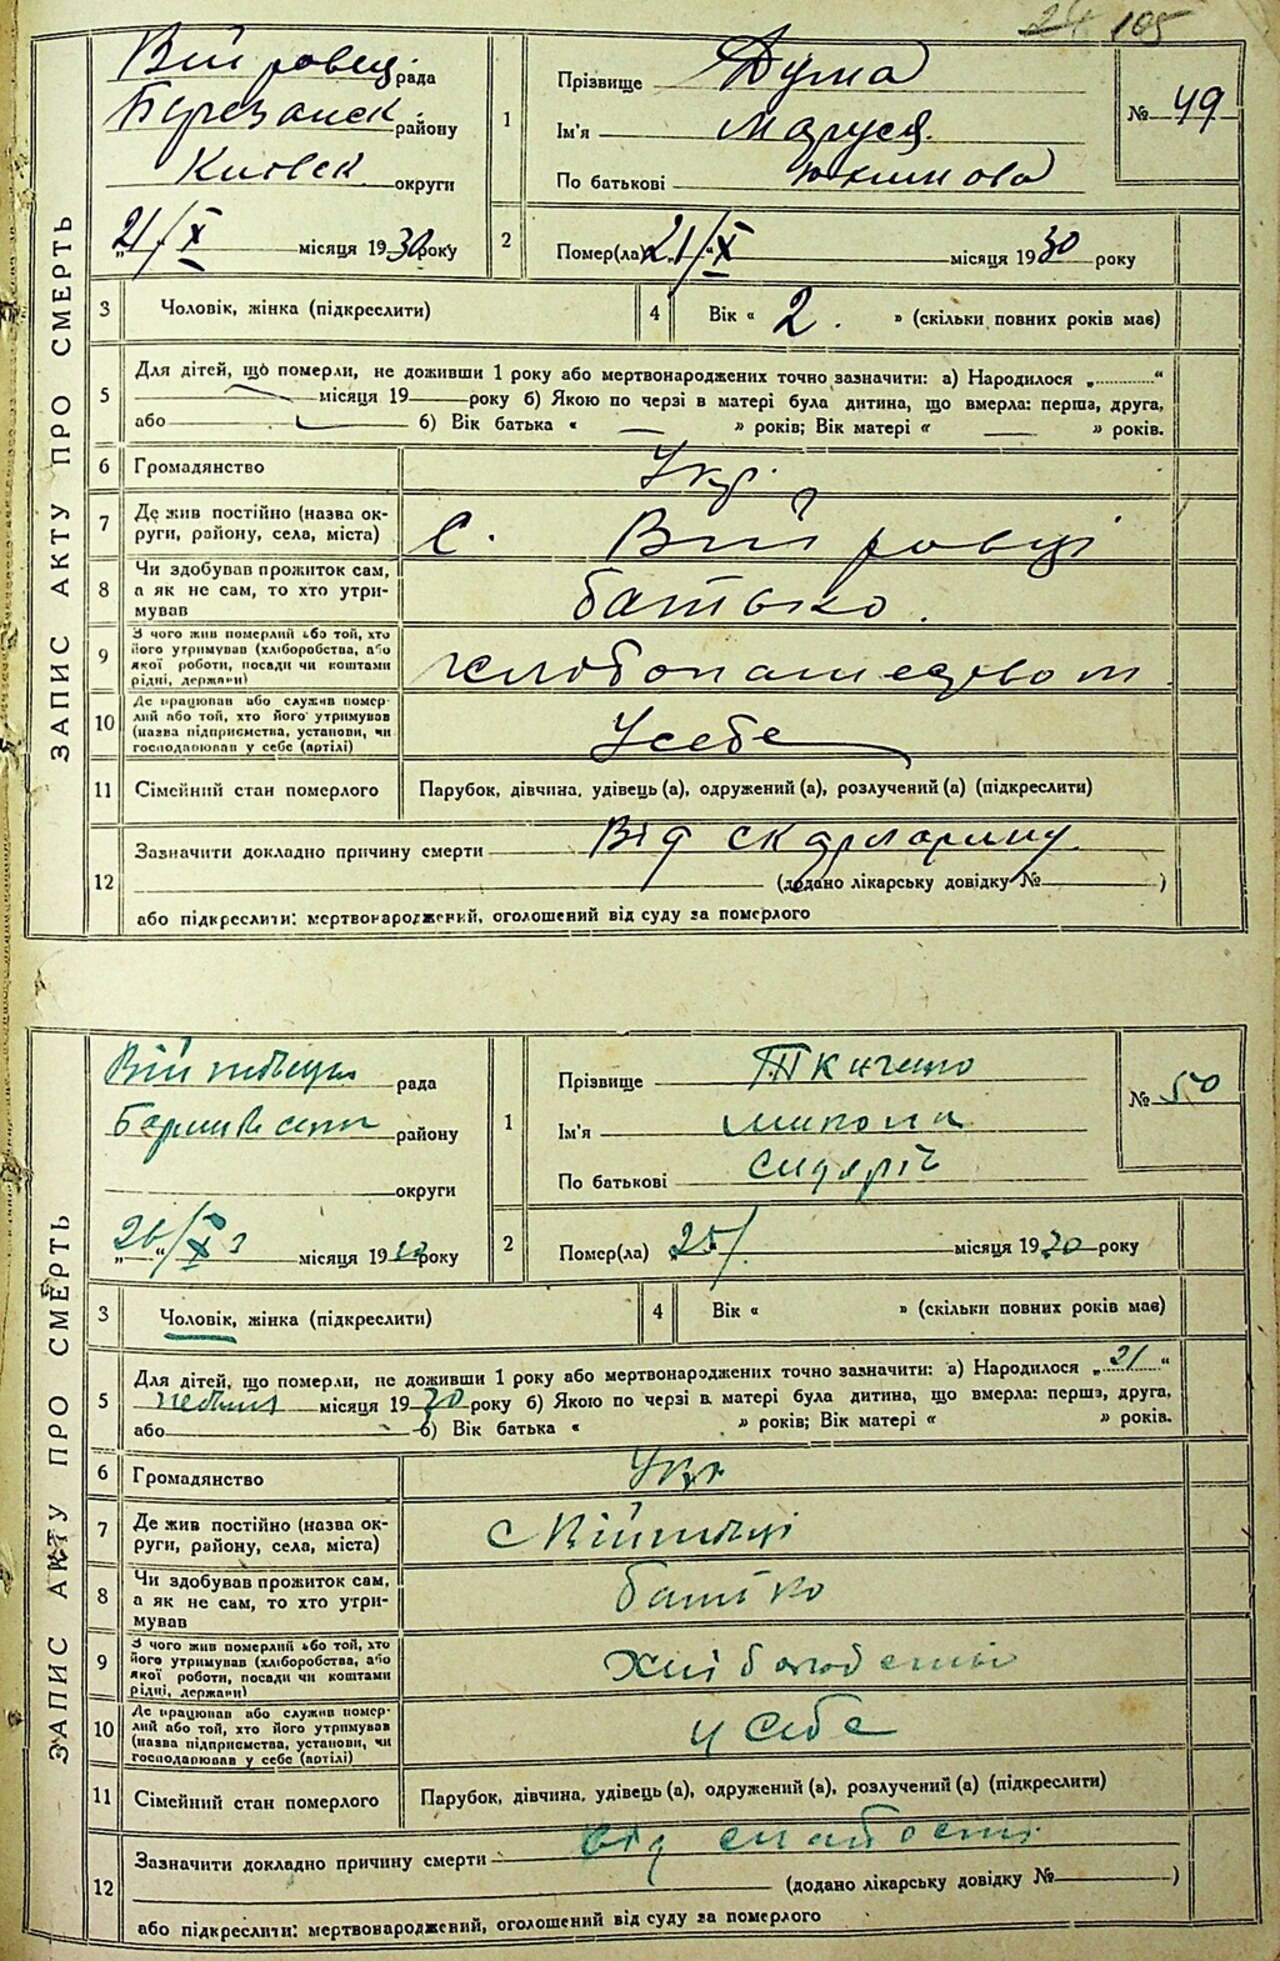 105
ЗАПИС АКТУ ПРО СМЕРТЬ
рада
району
округи
„21/X місяця 1930 року
1
Прізвище Дума
Ім'я Маруся
По батькові
№ 49
2
Помер(ла) „21/„X місяця 1930 року
3 Чоловік, жінка (підкреслити)
4 Вік « 2. » (скільки повних років має)
5 Для дітей, що померли, не доживши 1 року або мертвонароджених точно зазначити: а) Народилося „..........“
місяця 19 року б) Якою по черзі в матері була дитина, що вмерла: перша, друга,
або б) Вік батька « — » років; Вік матері « — » років.
6 Громадянство Укр.
7 Де жив постійно (назва ок-
руги, району, села, міста) С.
8 Чи здобував прожиток сам,
а як не сам, то хто утри-
мував батько.
9 З чого жив померлий або той, хто
його утримував (хліборобства, або
якої роботи, посади чи коштами
рідні, держави)
10 Де працював або служив помер-
лий або той, хто його утримував
(назва підприємства, установи, чи
господарював у себе (артілі) У себе
11 Сімейний стан померлого Парубок, дівчина, удівець (а), одружений (а), розлучений (а) (підкреслити)
12 Зазначити докладно причину смерти Від скарлатини
(додано лікарську довідку № )
або підкреслити: мертвонароджений, оголошений від суду за померлого
ЗАПИС АКТУ ПРО СМЕРТЬ
рада
району
округи
місяця 19 року
1
Прізвище Ткаченко
Ім'я Микола
По батькові
№ 50
2
Помер(ла) „25/ місяця 1930 року
3 Чоловік, жінка (підкреслити)
4 Вік « » (скільки повних років має)
5 Для дітей, що померли, не доживши 1 року або мертвонароджених точно зазначити: а) Народилося „ 21 “
місяця 1930 року б) Якою по черзі в матері була дитина, що вмерла: перша, друга,
або б) Вік батька « » років; Вік матері « » років.
6 Громадянство Укр
7 Де жив постійно (назва ок-
руги, району, села, міста) с
8 Чи здобував прожиток сам,
а як не сам, то хто утри-
мував батько
9 З чого жив померлий або той, хто
його утримував (хліборобства, або
якої роботи, посади чи коштами
рідні, держави)
10 Де працював або служив помер-
лий або той, хто його утримував
(назва підприємства, установи, чи
господарював у себе (артілі) у себе
11 Сімейний стан померлого Парубок, дівчина, удівець (а), одружений (а), розлучений (а) (підкреслити)
12 Зазначити докладно причину смерти від слабості
(додано лікарську довідку № )
або підкреслити: мертвонароджений, оголошений від суду за померлого